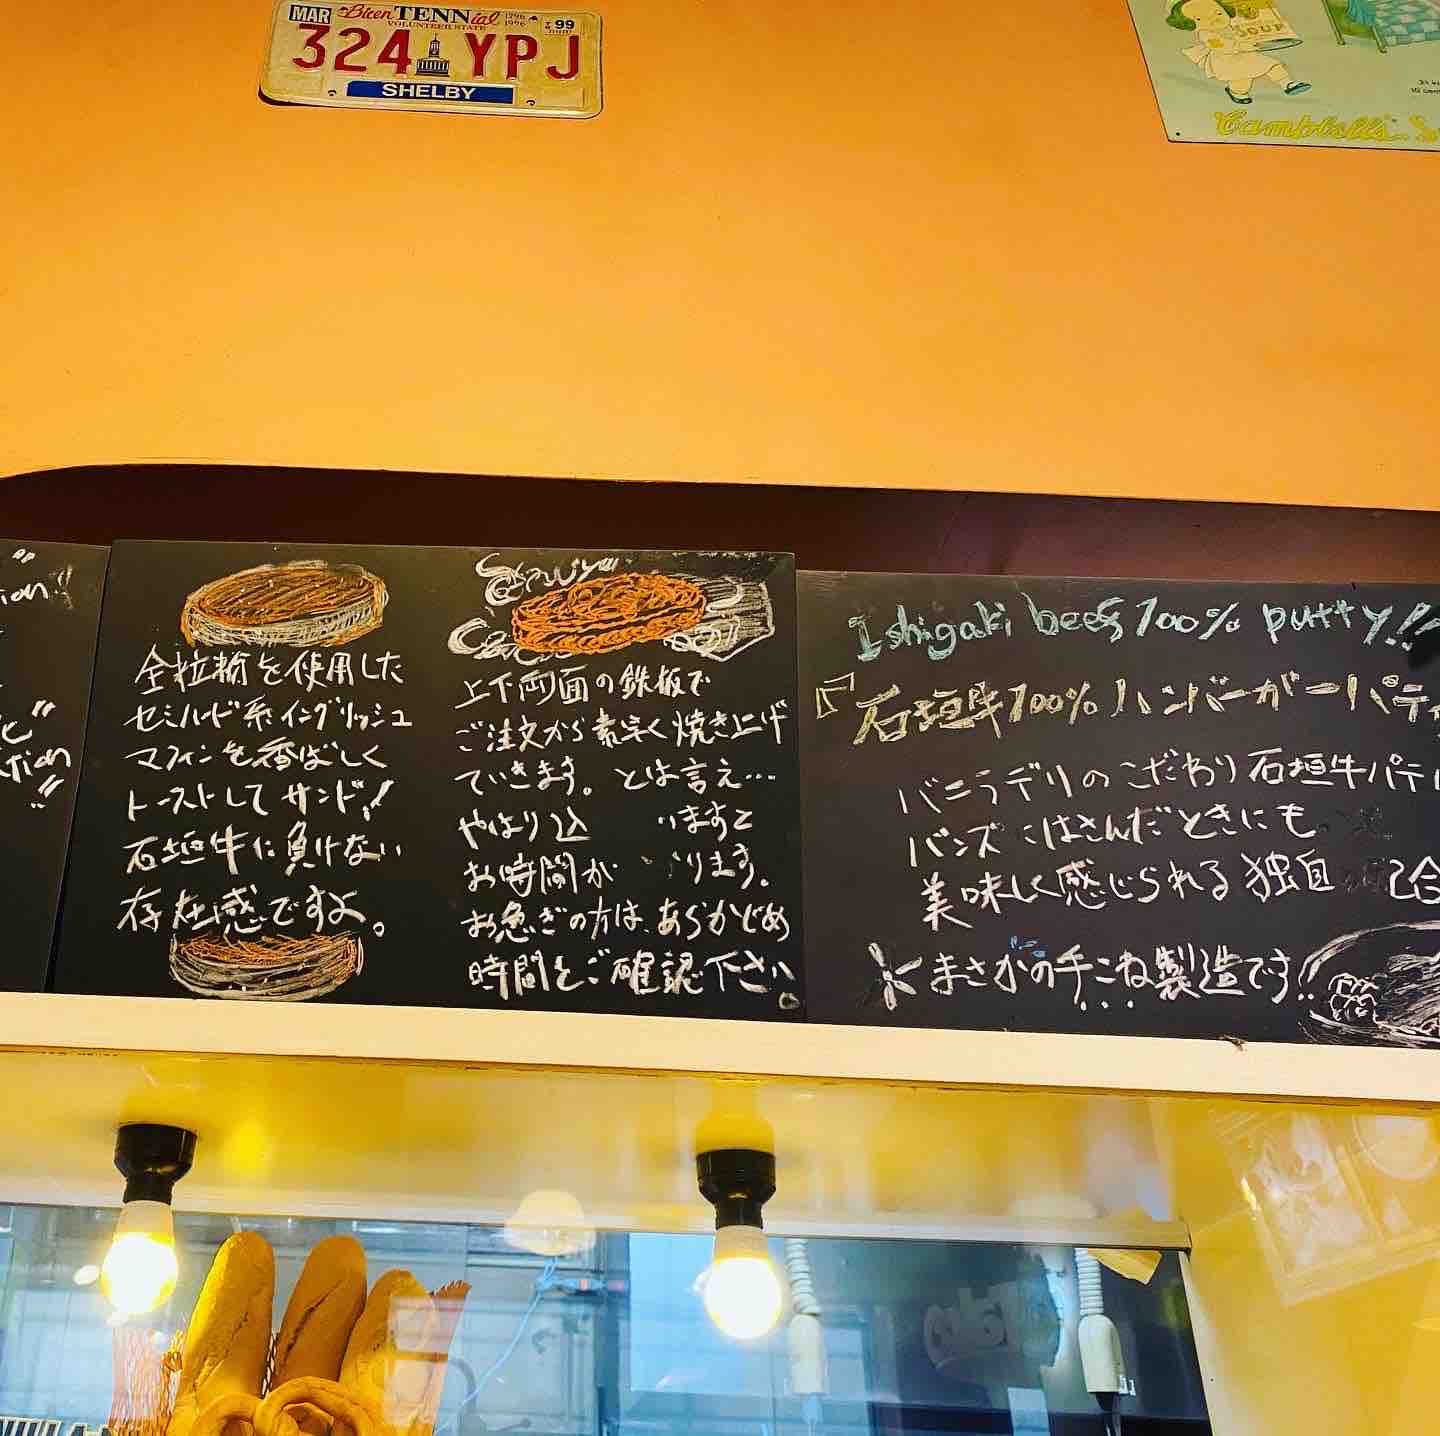 MAR
BicenTENNial
1796
1996
99
VOLUNTEER STATE
324 YPJ
SHELBY
SOUP
Campbell's
全粒粉を使用した
セミハード系イングリッシュ
マフィンを香ばしく
トーストしてサンド!
石垣牛に負けない
存在感ですよ。
上下両面の鉄板で
ご注文から素早く焼き上げ
ていきます。とは言え…
やはり込 いますと
お時間が ります。
お急ぎの方は、あらかじめ
時間をご確認下さい
Ishigaki beef 100% putty!!
石垣牛100%ハンバーガーパティ
バニラデリのこだわり石垣牛パティ
バンズにはさんだときにも
美味しく感じられる独自 合
まさかの手こね製造です!!